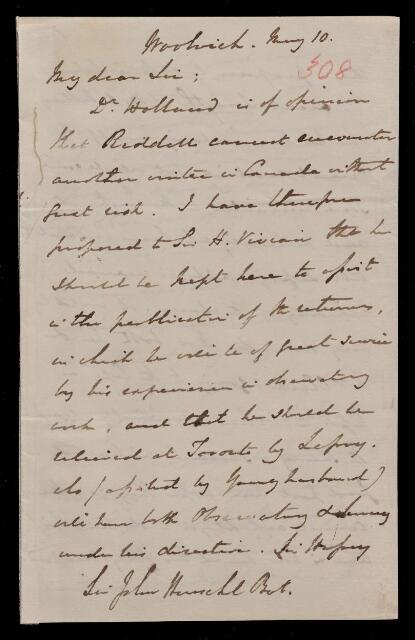 Woolwich. May 10.
308
My dear Sir;
Dr Holland is of opinion
that Riddell cannot encounter
another winter in Canada without
great risk. I have therefore
proposed to Sir H. Vivian that he
should be kept here to assist
in the publication of the returns,
in which he will be of great service
by his experience in observatory
work, and that he should be
relieved at Toronto by Lefroy.
who (assisted by Younghusband)
will have both Observatory & Survey
under his direction. Sir
Sir John Herschel Bt.